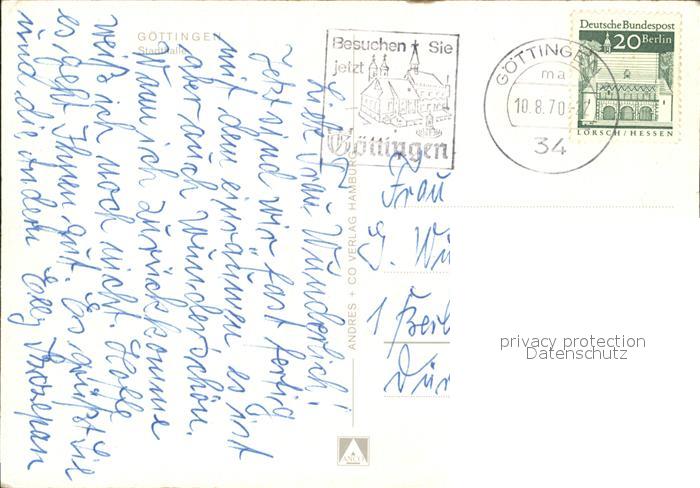 GÖTTINGEN
Stadthalle
Liebe Frau Wunderlich!
Jetzt sind wir fast fertig
mit dem einräumen es ist
aber auch wunderschön.
Wann ich zurückkomme
weiß ich noch nicht. Hoffe
es geht Ihnen gut. Es grüßt Sie
und die andern Elly
ANDRES + CO VERLAG HAMBURG
ANCO
Besuchen Sie
jetzt
Göttingen
GÖTTINGEN
ma
10.8.70
34
Deutsche Bundespost
20 Berlin
LORSCH/HESSEN
Frau
G. Wu
1 Berl
Dür
privacy protection
Datenschutz